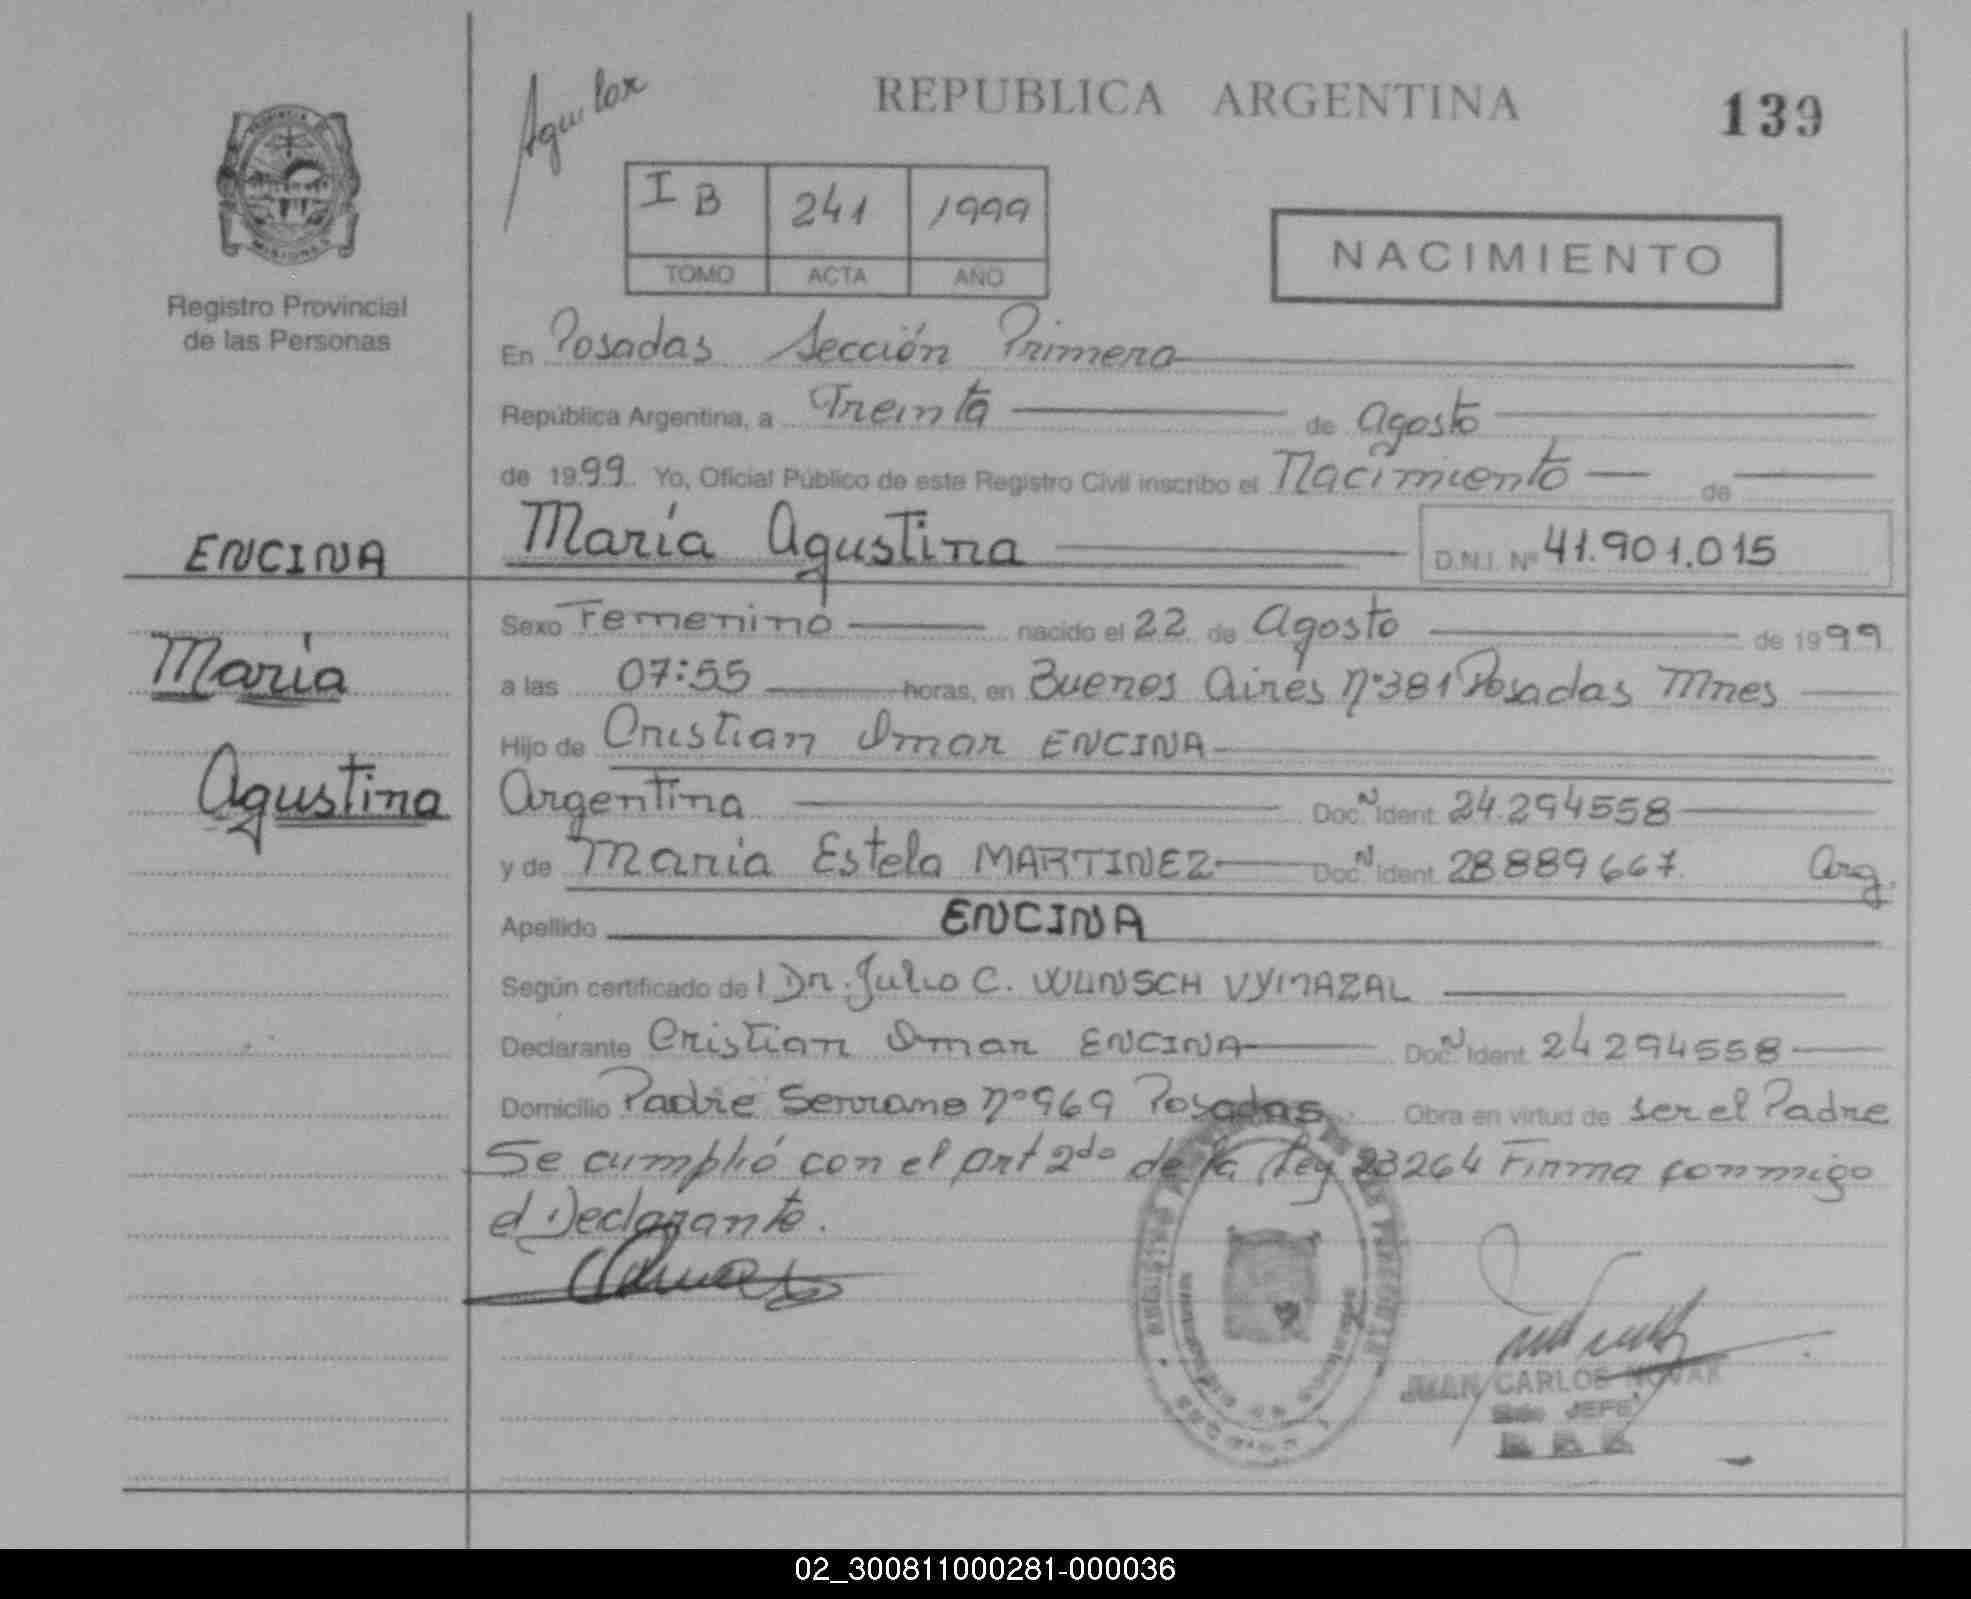 Aguilar
REPUBLICA ARGENTINA
139
I B 241 1999
TOMO ACTA AÑO
NACIMIENTO
PROVINCIA DE
MISIONES
Registro Provincial
de las Personas
En Posadas Sección Primera
República Argentina, a Treinta de Agosto
de 1999. Yo, Oficial Público de este Registro Civil inscribo el Nacimiento de
ENCINA
María Agustina D.N.I. Nº 41.901.015
Sexo Femenino nacido el 22 de Agosto de 1999
María
a las 07:55 horas, en Buenos Aires Nº381 Posadas Mnes
Hijo de Cristian Omar ENCINA
Agustina
Argentina Doc. N Ident. 24.294558
y de Maria Estela MARTINEZ Doc. N Ident. 28889667 Arg.
Apellido ENCINA
Según certificado de l Dr. Julio C. WUNSCH VYMAZAL
Declarante Cristian Omar ENCINA Doc. N Ident. 24294558
Domicilio Padre Serrano Nº969 Posadas Obra en virtud de ser el Padre
Se cumplió con el art 2do de la Ley 23264 Firma conmigo
el Declarante.
JUAN CARLOS NOVAK
JEFE
02_300811000281-000036